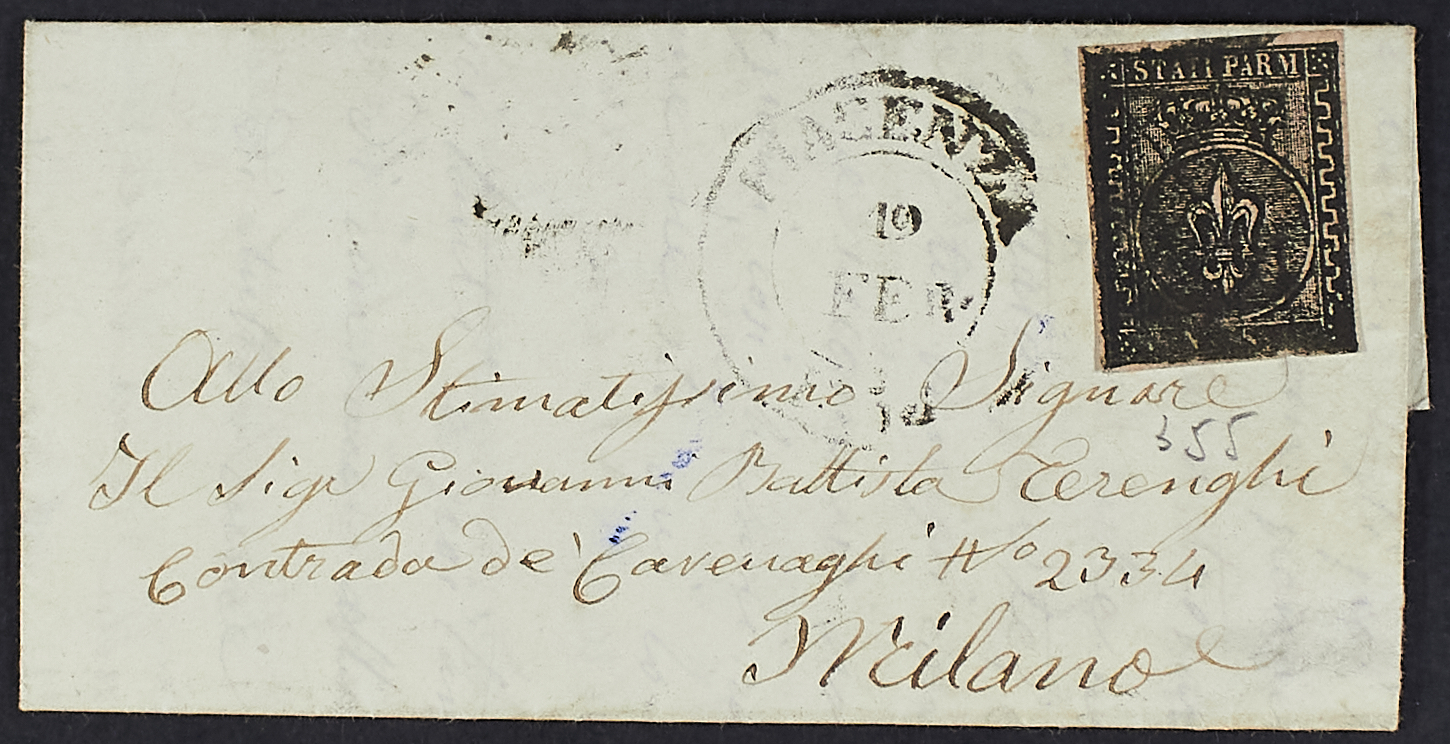 STATI PARM
PIACENZA
19
FEB
Allo Stimatissimo Signore
355
Il Sigr Giovanni Battista Terenghi
Contrada de' Cavenaghi No 2334
Milano